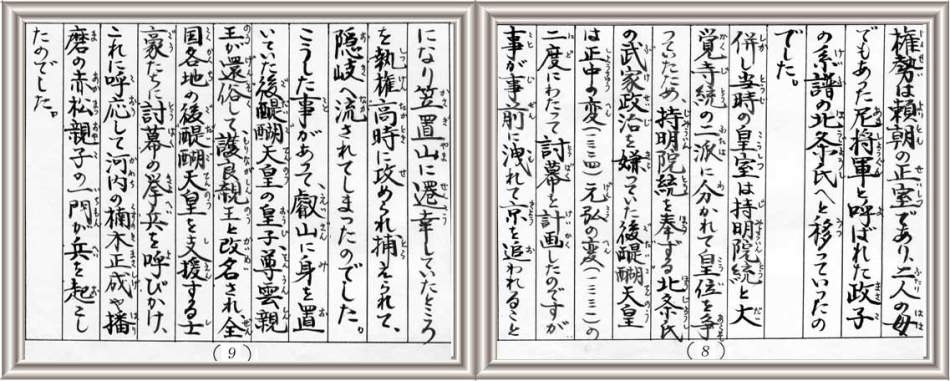 権勢は頼朝の正室であり二人の母
でもあった尼将軍と呼ばれた政子
の系譜の北条氏へと移っていったの
でした。
併し当時の皇室は持明院統と大
覚寺統の二派に分かれて皇位を争
っていたため、持明院統を奉ずる北条氏
の武家政治を嫌っていた後醍醐天皇
は正中の変(一三二四)元弘の変(一三三一)の
二度にわたって討幕を計画したのですが
事が事前に洩れて京を追われること
(8)
になり笠置山に遷幸していたところ
を執権高時に攻められ捕えられて、
隠岐へ流されてしまったのでした。
こうした事があって、叡山に身を置
いていた後醍醐天皇の皇子尊雲親
王が還俗して護良親王と改名され、全
国各地の後醍醐天皇を支援する士
豪たちに討幕の挙兵を呼びかけ、
これに呼応して河内の楠木正成や播
磨の赤松親子の一門が兵を起こし
たのでした。
(9)